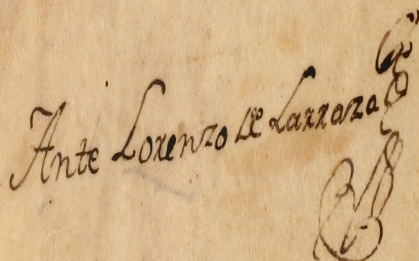 Ante Lorenzo de Larraza